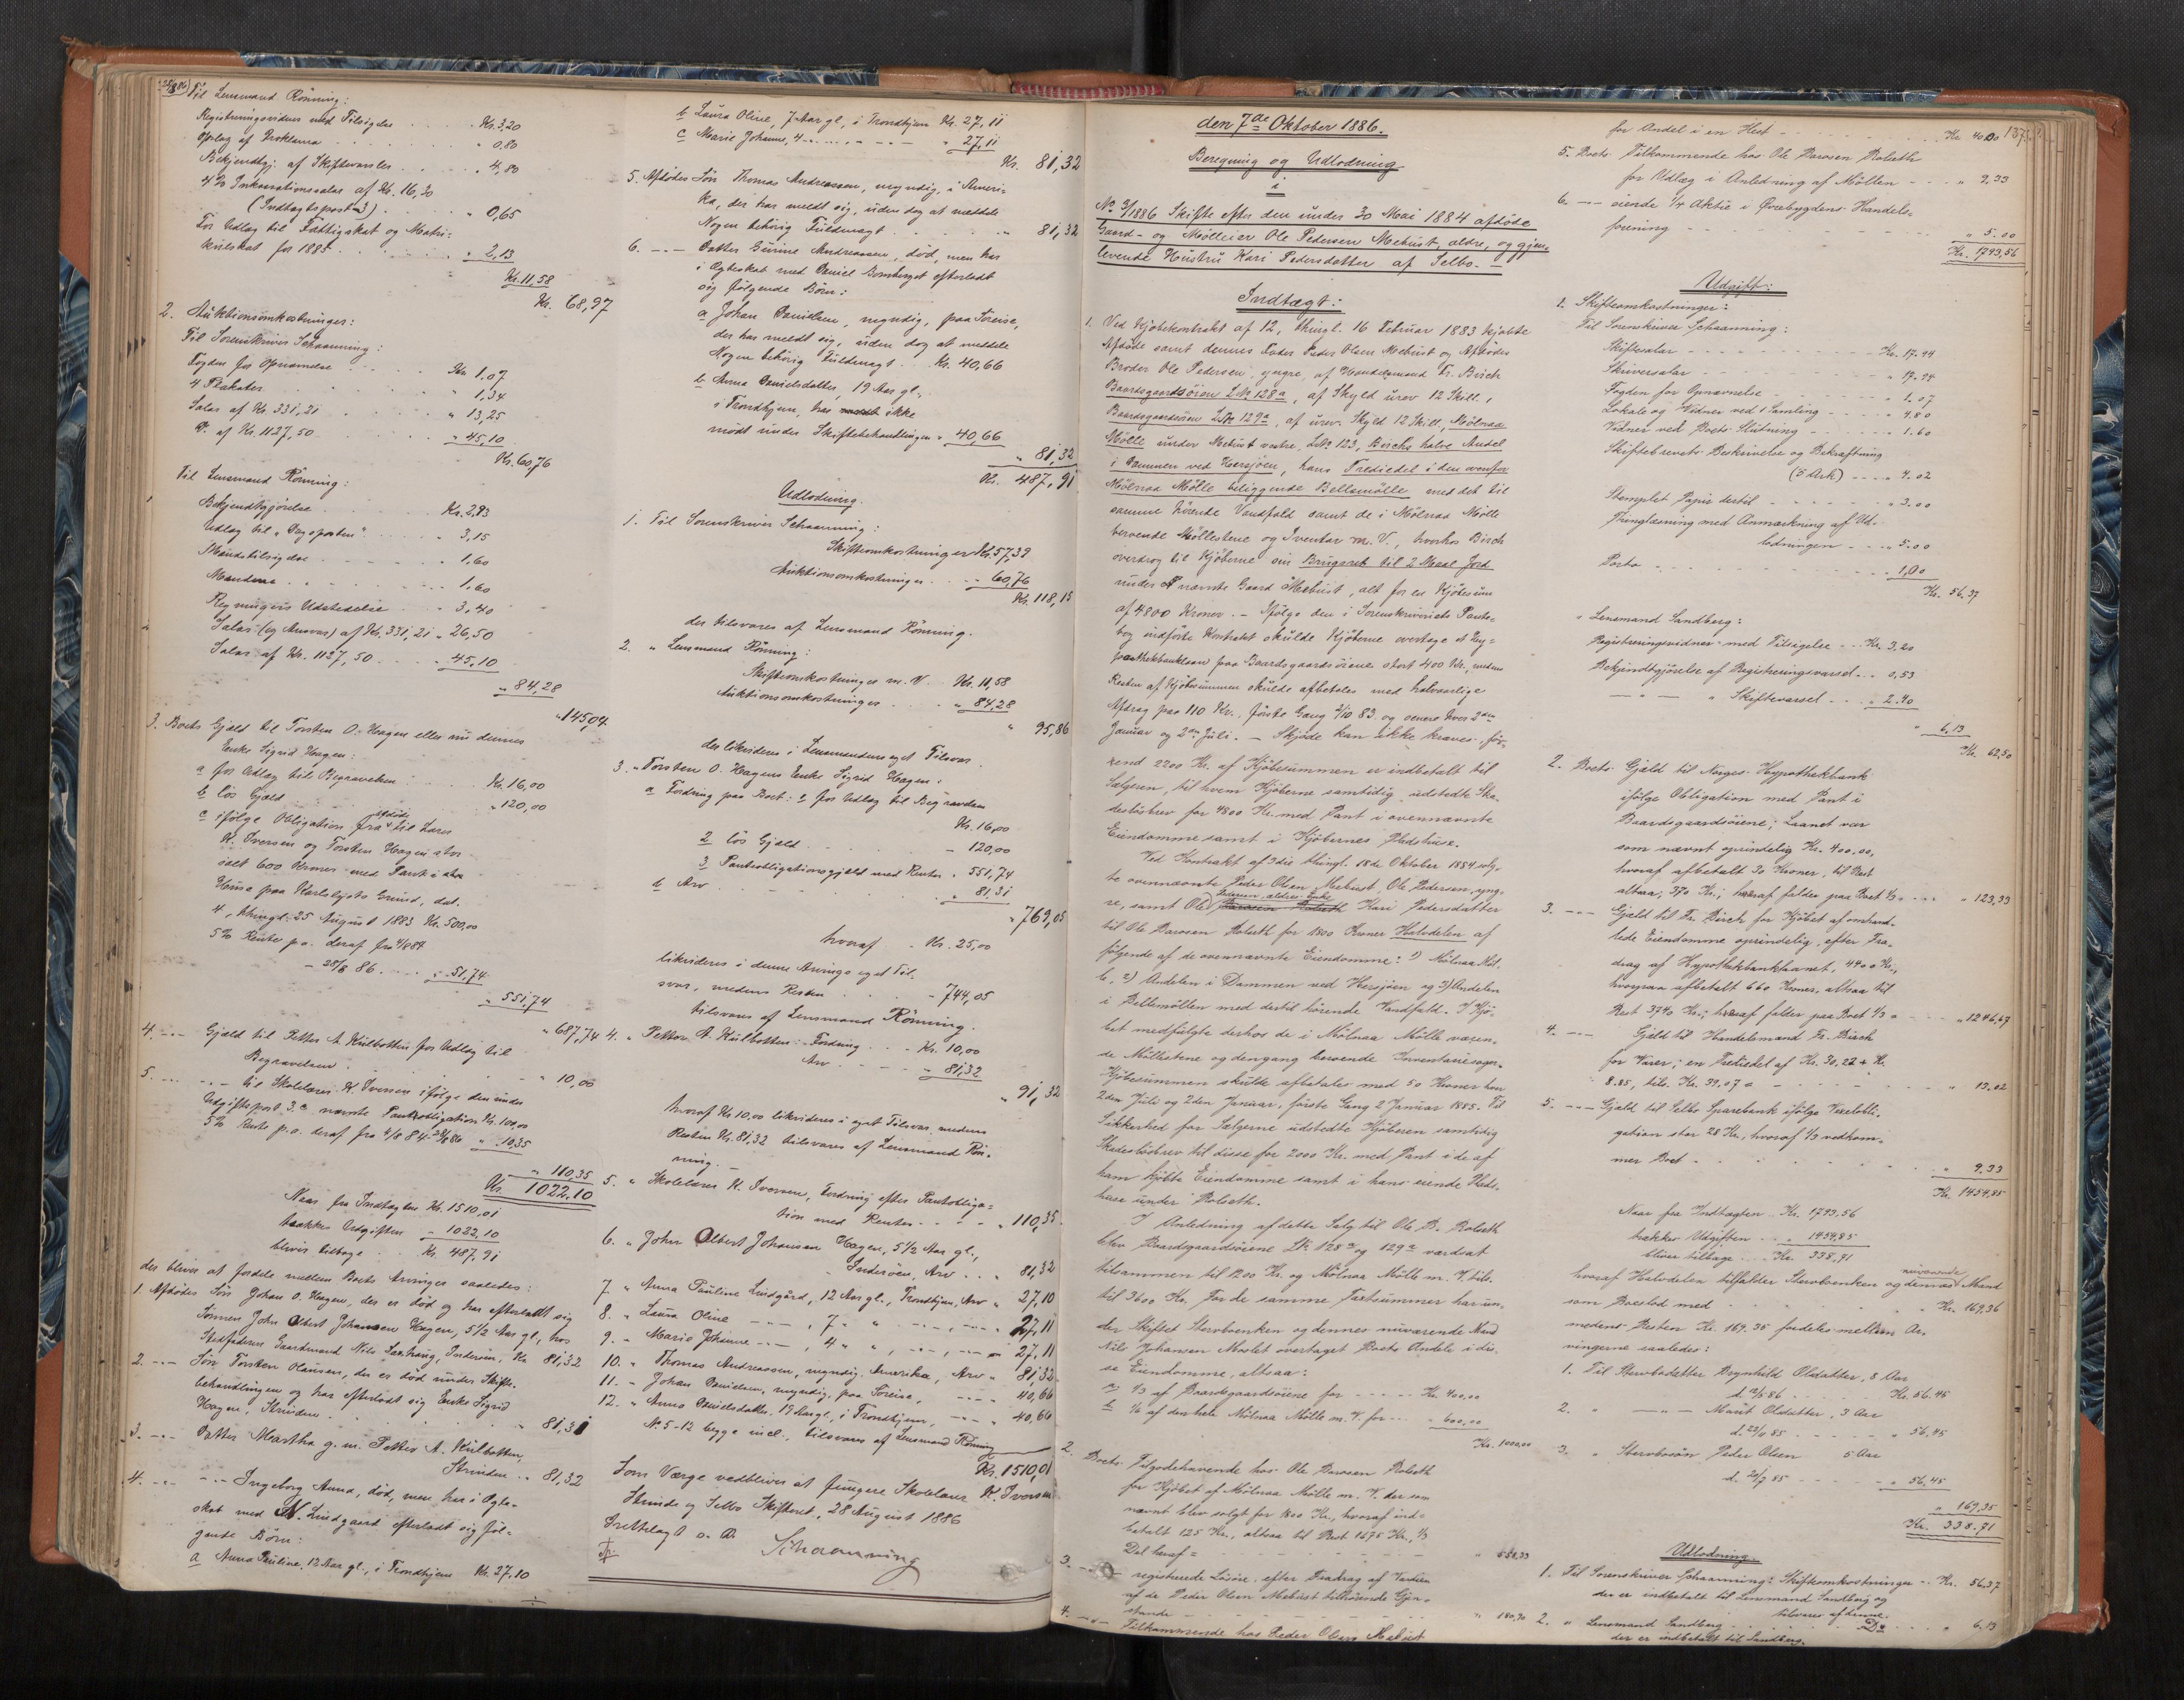 28/8 86) Til Lensmand Rönning:
Registreringsvidner med Tilsigelse Kr. 3,20
Opslag af Proklama " 0,80
Bekjendtgj. af Skiftevarsler " 4,80
4% Inkassationssalær af Kr. 16,30
(Indtægtspost 3) " 0,65
For Udlæg til Fattigskat og Matri-
kulskat for 1885 " 2,13
Kr. 11,58
Kr. 68,97
2. Auktionsomkostninger:
Til Sorenskriver Schaanning:
Fogden for Opnævnelse Kr. 1,07
4 Plakater " 1,34
Salær af Kr. 331,21 " 13,25
Do. af Kr. 1127,50 " 45,10
Kr. 60,76
Til Lensmand Rönning:
Bekjendtgjørelse Kr. 2,93
Udlæg til "Dagsposten" " 3,15
Mandstilsigelse " 1,60
Mændene " 1,60
Regningers Udstedelse " 3,40
Salær (og Ansvar) af Kr. 331,21 " 26,50
Salær af Kr. 1127,50 " 45,10
" 84,28
" 145,04
3. Boets Gjæld til Torsten O. Hagen eller nu dennes
Enke Sigrid Hagen:
a for Udlæg til Begravelsen Kr. 16,00
b lös Gjæld " 120,00
c ifölge Obligation fra afdöde til Lærer
K. Iversen og Torsten Hagen stor
ialt 600 Kroner med Pant i
Huse paa Karlslysts Grund, dat.
4, thingl. 25 August 1883 Kr. 500,00
5% Rente p.a. deraf fra 4/8 84
- 28/8 86 " 51,74
" 551,74
" 687,74
4. -"- Gjæld til Petter A. Kulbotten for Udlæg til
Begravelsen " 10,00
5. -"- -"- til Skolelærer K. Iversen ifölge den under
Udgiftspost 3 c nævnte Pantobligation Kr. 100,00
5% Rente p.a. deraf fra 4/8 84-28/8 86 " 10,35
" 110,35
Kr. 1022,10
Naar fra Indtægten Kr. 1510,01
trækkes Udgiften " 1022,10
bliver tilbage Kr. 487,91
der bliver at fordele mellem Boets Arvinger saaledes:
1. Afdödes Sön Johan O. Hagen, der er död og har efterladt sig
Sönnen John Albert Johansen Hagen, 5 1/2 Aar gl., hos
Stedfaderen Gaardmand Nils Saxhaug, Inderöen, Kr. 81,32
2. -"- Sön Torsten Olausen, der er död under Skifte-
behandlingen og har efterladt sig Enke Sigrid
Hagen, Strinden " 81,31
3. -"- Datter Martha g. m. Petter A. Kulbotten,
Strinden " 81,32
4. -"- -"- Ingeborg Anna, död, men har i Ægte-
skab med M. Lindgaard efterladt sig föl-
gende Börn:
a Anna Pauline, 12 Aar gl., i Trondhjem Kr. 27,10
b Laura Oline, 7 Aar gl., i Trondhjem Kr. 27,11
c Marie Johanne, 4 -"- " 27,11
Kr. 81,32
5. Afdödes Sön Thomas Andreassen, myndig, i Ameri-
ka, der har meldt sig, uden dog at meddele
Nogen behörig Fuldmagt " 81,32
6. -"- Datter Gurine Andreassen, död, men har
i Ægteskab med Daniel Bomberget efterladt
sig fölgende Börn:
a Johan Danielsen, myndig, paa Söreise,
der har meldt sig, uden dog at meddele
Nogen behörig Fuldmagt Kr. 40,66
b Anna Danielsdatter, 19 Aar gl.,
i Trondhjem, har ikke
mödt under Skiftebehandlingen " 40,66
" 81,32
Kr. 487,91
Udlodning.
1. Til Sorenskriver Schaanning:
Skifteomkostninger Kr. 57,39
Auktionsomkostninger " 60,76
Kr. 118,15
der tilsvares af Lensmand Rönning.
2. " Lensmand Rönning:
Skifteomkostninger m. V. Kr. 11,58
Auktionsomkostninger " 84,28
" 95,86
der likvideres i Lensmandens eget Tilsvar.
3. " Torsten O. Hagens Enke Sigrid Hagen:
a Fordring paa Boet: 1 for Udlæg til Begravelsen
Kr. 16,00
2 lös Gjæld " 120,00
3 Pantobligationsgjæld med Renter " 551,74
b Arv " 81,31
" 769,05
hvoraf Kr. 25,00
likvideres i denne Arvings eget Til-
svar, medens Resten - 744,05
tilsvares af Lensmand Rönning.
4. " Petter A. Kulbotten: Fordring Kr. 10,00
Arv " 81,32
" 91,32
hvoraf Kr. 10,00 likvideres i eget Tilsvar, medens
Resten Kr. 81,32 tilsvares af Lensmand Rön-
ning.
5. " Skolelærer K. Iversen, Fordring efter Pantobliga-
tion med Renter " 110,35
6. " John Albert Johansen Hagen, 5 1/2 Aar gl.,
Inderöen, Arv " 81,32
7. " Anna Pauline Lindgård, 12 Aar gl., Trondhjem, Arv " 27,10
8. " Laura Oline -"-, 7 " " -"-, -"- " 27,11
9. - Marie Johanne -"-, 4 " ", -"-, -"- " 27,11
10. " Thomas Andreassen, myndig, Amerika, Arv " 81,32
11. - Johan Danielsen, myndig, paa Söreise, -"- " 40,66
12. " Anna Danielsdatter, 19 Aar gl., i Trondhjem, -"- " 40,66
No. 5-12 begge incl., tilsvares af Lensmand Rönning
Kr. 1510,01
Som Værge vedbliver at fungere Skolelærer K. Iversen
Strinde og Selbo Skifteret, 28 August 1886
Schaanning
den 7de Oktober 1886.
Beregning og Udlodning
i
No. 3/1886 Skifte efter den under 30 Mai 1884 afdöde
Gaard- og Mölleeier Ole Pedersen Mebust, ældre, og gjen-
levende Hustru Kari Pedersdatter af Selbo.
Indtægt:
1. Ved Kjöbekontrakt af 12, thingl. 16 Februar 1883 kjöbte
Afdöde samt dennes Fader Peder Olsen Mebust og Afdödes
Broder Ole Pedersen, yngre, af Handelsmand Fr. Birch
Baardsgaardsöien L.No. 128a, af Skyld urev. 12 Skill.,
Baardsgaardsöien L.No. 129a, af urev. Skyld 12 Skill., Mölnaa
Mölle under Mebust vestre, L.No. 123, Birchs halve Andel
i Dammen ved Hersjöen, hans Trediedel i den ovenfor
Mölnaa Mölle beliggende Bellemölle med det til
samme hörende Vandfald samt de i Mölnaa Mölle
beroende Möllestene og Inventar m. V., hvorhos Birch
overdrog til Kjöberne sin Brugsret til 2 Maal Jord
under nævnte Gaard Mebust, alt for en Kjöbesum
af 4800 Kroner. - Ifölge den i Sorenskriveriets Pante-
bog indförte Kontrakt skulde Kjöberne overtage et Hy-
pothekbanklaan paa Baardsgaardsöiene stort 400 Kr., medens
Resten af Kjöbesummen skulde afbetales med halvaarlige
Afdrag paa 110 Kr., förste Gang 2/10 83 og senere hver 2den
Januar og 2den Juli. - Skjöde kan ikke kræves för-
end 2200 Kr. af Kjöbesummen er indbetalt til
Sælgeren, til hvem Kjöberne samtidig udstedte Ska-
deslösbrev for 4800 Kr. med Pant i ovennævnte
Eiendomme samt i Kjöbernes Pladshuse.
Ved Kontrakt af 3die, thingl. 18de Oktober 1884 solg-
te ovennævnte Peder Olsen Mebust, Ole Pedersen, yng-
re, samt Ole Pedersen, ældres Enke Kari Pedersdatter
til Ole Barosen Rolseth for 1800 Kroner Halvdelen af
fölgende af de ovennævnte Eiendomme: 1) Mölnaa Möl-
le, 2) Andelen i Dammen ved Hersjöen og 3) Andelen
i Bellemöllen med dertil hörende Vandfald. I Kjö-
bet medfulgte derhos de i Mölnaa Mölle væren-
de Möllestene og dengang beroende Inventariesager.
Kjöbesummen skulde afbetales med 50 Kroner hver
2den Juli og 2den Januar, förste Gang 2 Januar 1885. Til
Sikkerhed for Sælgerne udstedte Kjöberen samtidig
Skadeslösbrev til disse for 2000 Kr. med Pant i de af
ham kjöbte Eiendomme samt i hans eiende Plads-
huse under Rolseth.
I Anledning af dette Salg til Ole B. Rolseth
blev Baardsgaardsöiene L.No. 128a og 129a værdsat
tilsammen til 1200 Kr. og Mölnaa Mölle m. V. tils.
til 3600 Kr. For de samme Taxtsummer har un-
der Skiftet Stervboenken og dennes nuværende Mand
Nils Johansen Moslet overtaget Boets Andele i dis-
se Eiendomme, altsaa:
a 1/3 af Baardsgaardsöiene for Kr. 400,00
b 1/6 af den hele Mölnaa Mölle m. V. for " 600,00
Kr. 1000,00
2. Boets Tilgodehavende hos Ole Barosen Rolseth
for Kjöbet af Mölnaa Mölle m. V. der som
nævnt blev solgt for 1800 Kr., hvoraf ind-
betalt 125 Kr., altsaa til Rest 1675 Kr., 1/3
Del heraf = " 558,33
3. -"- registrerede Lösöre, efter Fradrag af Værdien
af de Peder Olsen Mebust tilhörende Gjen-
stande " 180,90
4. -"- Tilkommende hos Peder Olsen Mebust
137.
for Andel i en Hest Kr. 40,00
5. Boets Tilkommende hos Ole Barosen Rolseth
for Udlæg i Anledning af Möllen " 9,33
6. -"- eiende 1/4 Aktie i Övrebygdens Handels-
forening " 5.00
Kr. 1793,56
Udgift:
1. Skifteomkostninger:
Til Sorenskriver Schaanning:
Skiftesalær Kr. 17.94
Skriversalær " 17.94
Fogden for Opnævnelse " 1.07
Lokale og Vidner ved 1 Samling " 4.80
Vidner ved Boets Slutning " 1.60
Skiftebrevets Beskrivelse og Bekræftning
(5 Ark) " 4.02
Stemplet Papir dertil " 3.00
Thinglæsning med Anmærkning af Ud-
lodningen " 5.00
Porto " 1,00
Kr. 56.37
" Lensmand Sandberg:
Registreringsvidner med Tilsigelse Kr. 3,20
Bekjendtgjörelse af Registreringsvarsel " 0,53
-"- " Skiftevarsel " 2.40
" 6.13
Kr. 62,50
2. Boets Gjæld til Norges Hypothekbank
ifölge Obligation med Pant i
Baardsgaardsöiene; Laanet var
som nævnt oprindelig Kr. 400,00,
hvoraf afbetalt 30 Kroner, til Rest
altsaa 370 Kr., hvoraf falder paa Boet 1/3 = " 123,33
3. -"- Gjæld til Fr. Birch for Kjöbet af omhand-
lede Eiendomme oprindelig, efter Fra-
drag af Hypothekbanklaanet, 4400 Kr.,
hvorpaa afbetalt 660 Kroner, altsaa til
Rest 3740 Kr.; hvoraf falder paa Boet 1/3 = " 1246,67
4. -"- Gjæld til Handelsmand Fr. Birch
for Varer; en Trediedel af Kr. 30,22 + Kr.
8.85, tils. Kr. 39.07 = " 13.02
5. -"- Gjæld til Selbo Sparebank ifölge Vexelobli-
gation stor 28 Kr., hvoraf 1/3 vedkom-
mer Boet " 9.33
Kr. 1454,85
Naar fra Indtægten Kr. 1793,56
trækkes Udgiften " 1454,85
bliver tilbage Kr. 338,71
hvoraf Halvdelen tilfalder Stervboenken og dennes nuværende Mand
som Boeslod med Kr. 169,36
medens Resten Kr. 169.35 fordeles mellem Ar-
vingerne saaledes:
1. Til Stervbodatter Brynhild Olsdatter, 8 Aar
Kr. 56.45
2. " -"- Marit Olsdatter, 3 Aar
" 56,45
3. " Stervbosön Peder Olsen 5 Aar
" 56,45
" 169,35
Kr. 338.71
Udlodning.
1. Til Sorenskriver Schaanning: Skifteomkostninger Kr. 56,37
der er indbetalt til Lensmand Sandberg og
tilsvares af denne.
2. " Lensmand Sandberg Do. " 6,13
der er indbetalt til Sandberg.